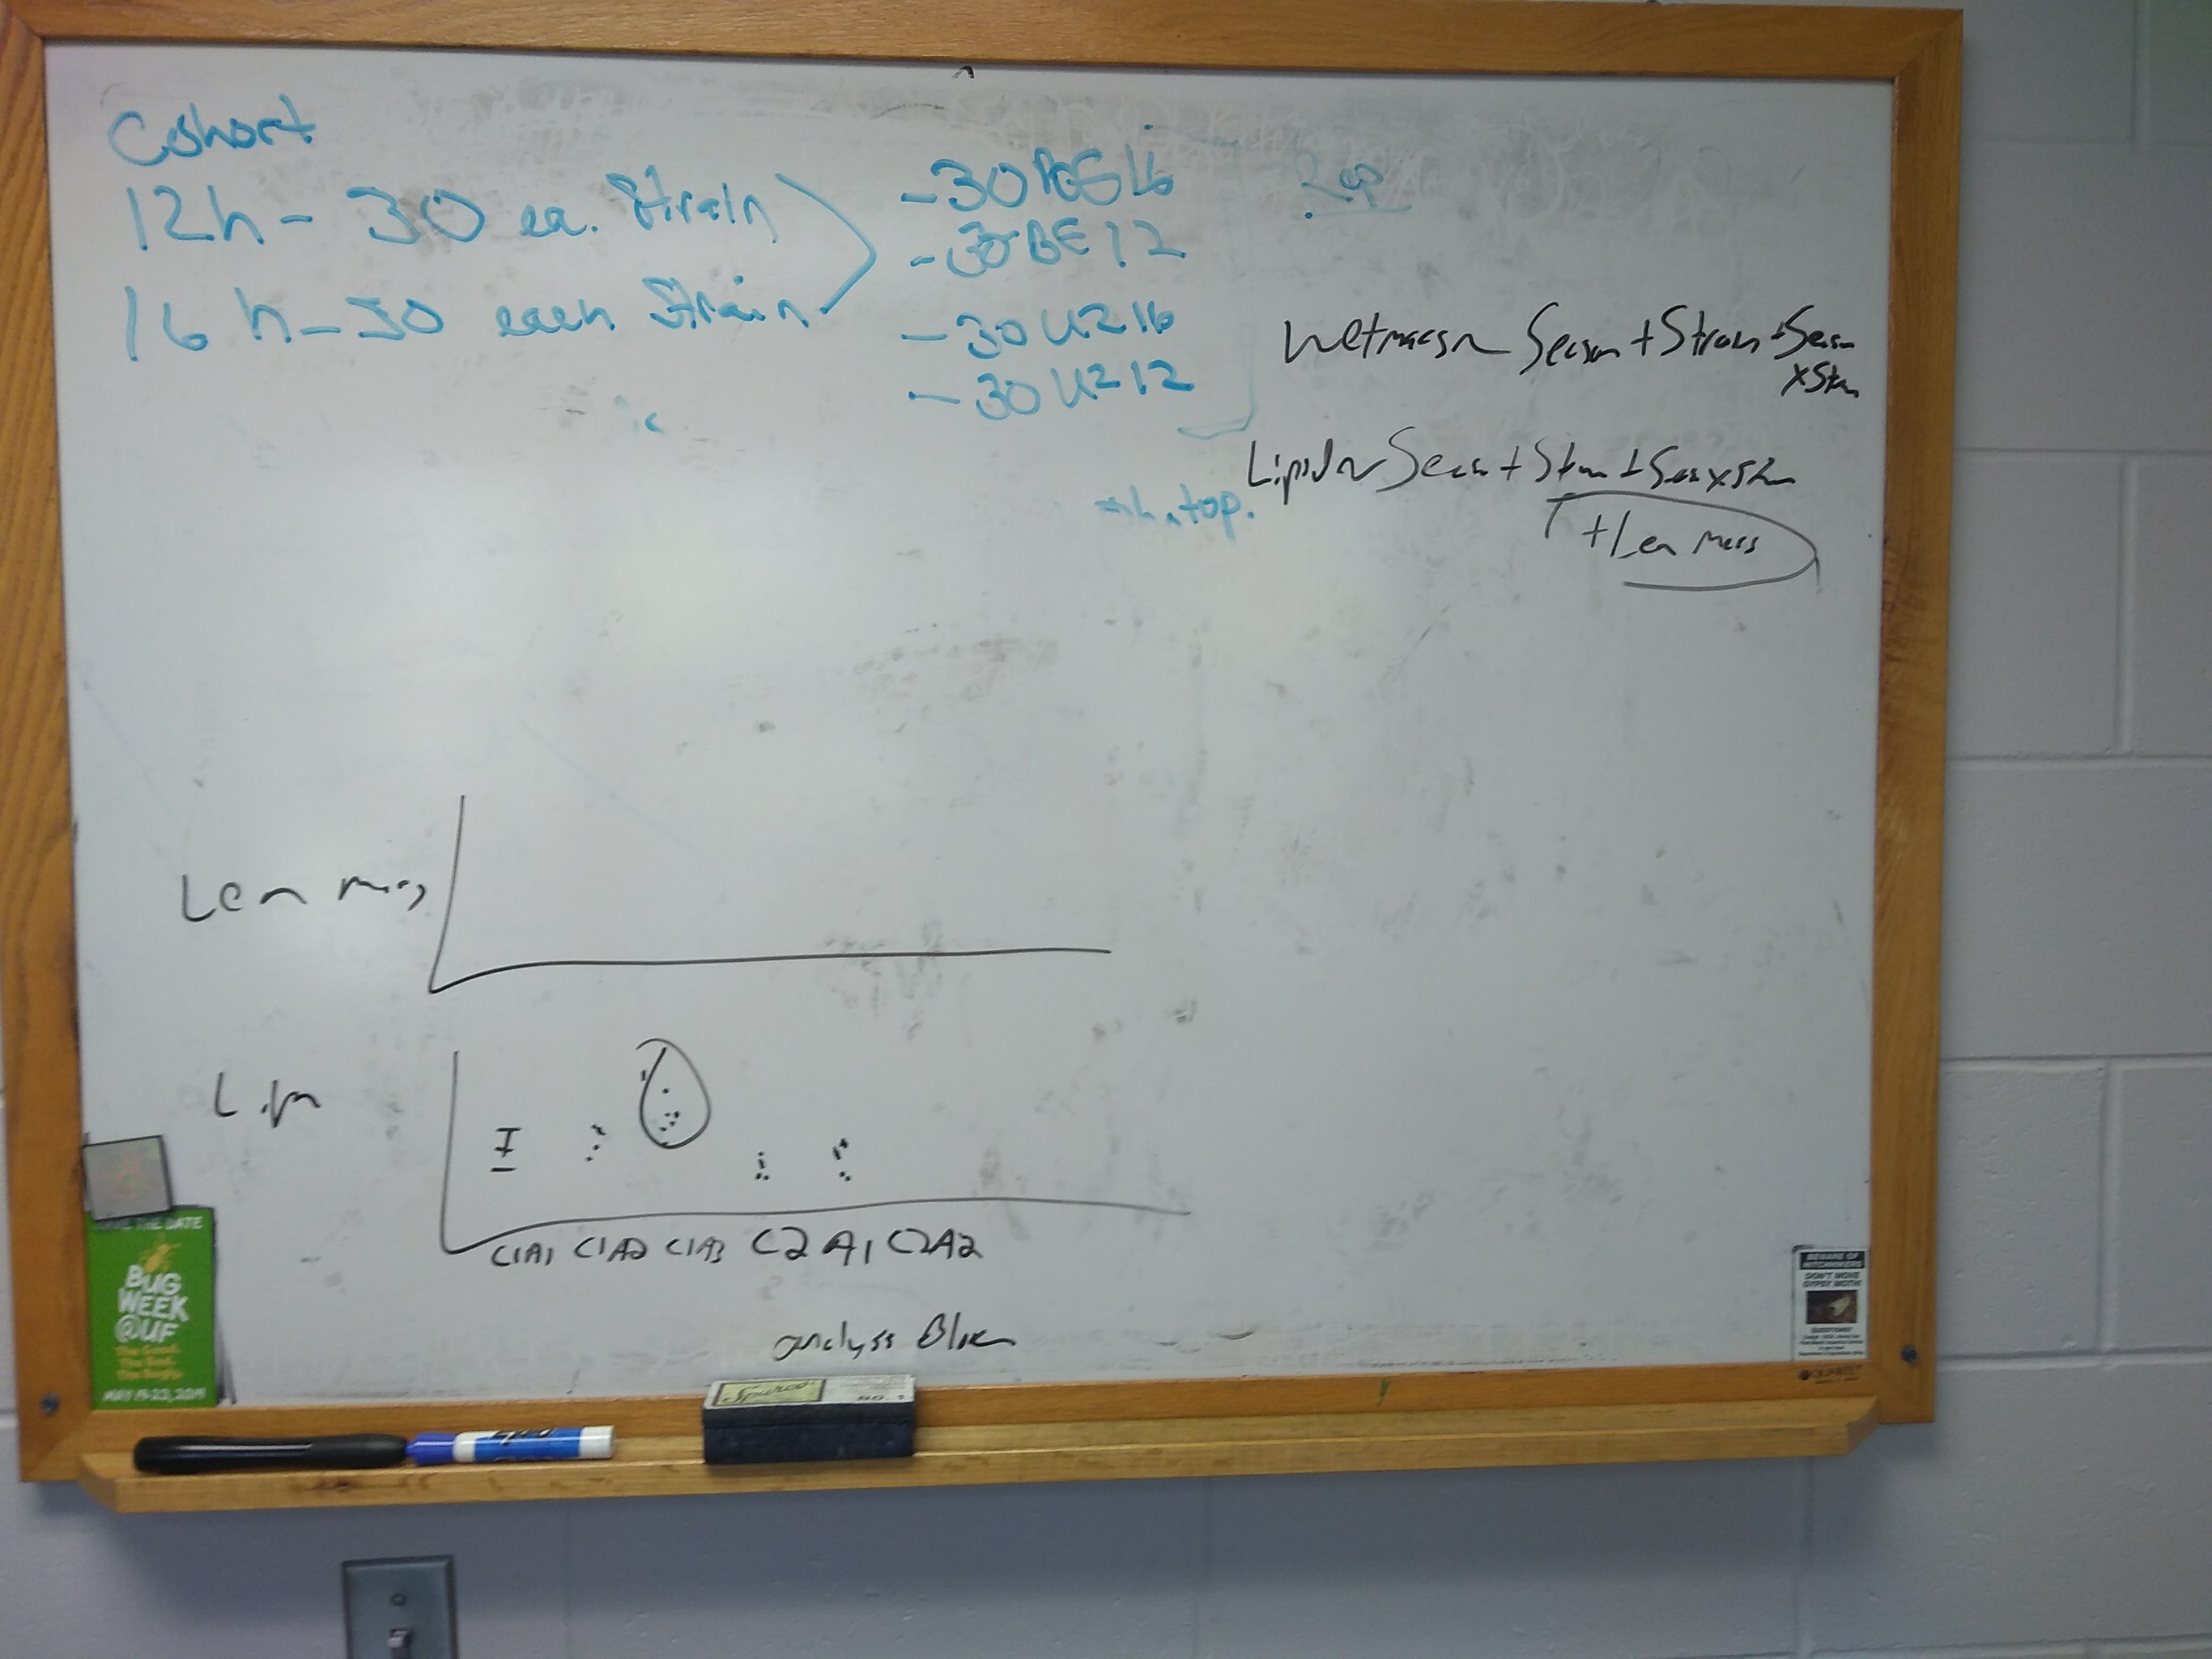 Cohort
12h - 30 ea. Strain
16 h - 30 each Strain
- 30 BE 16
- 30 BE 12
- 30 UZ 16
- 30 UZ 12
Wetmass ~ Season + Strain + Season
x Strn
Lipid ~ Seasn + Strn + Seas x Strn
+ Len Mass
top.
Len mass
Lip
C1A1 C1A2 C1A3 C2A1 C2A2
analyss Block
THE DATE
BUG
WEEK
@UF
The Good.
The Bad.
The Bugly.
BEWARE OF
HITCHHIKERS
DON'T MOVE
GYPSY MOTH!
QUARTET